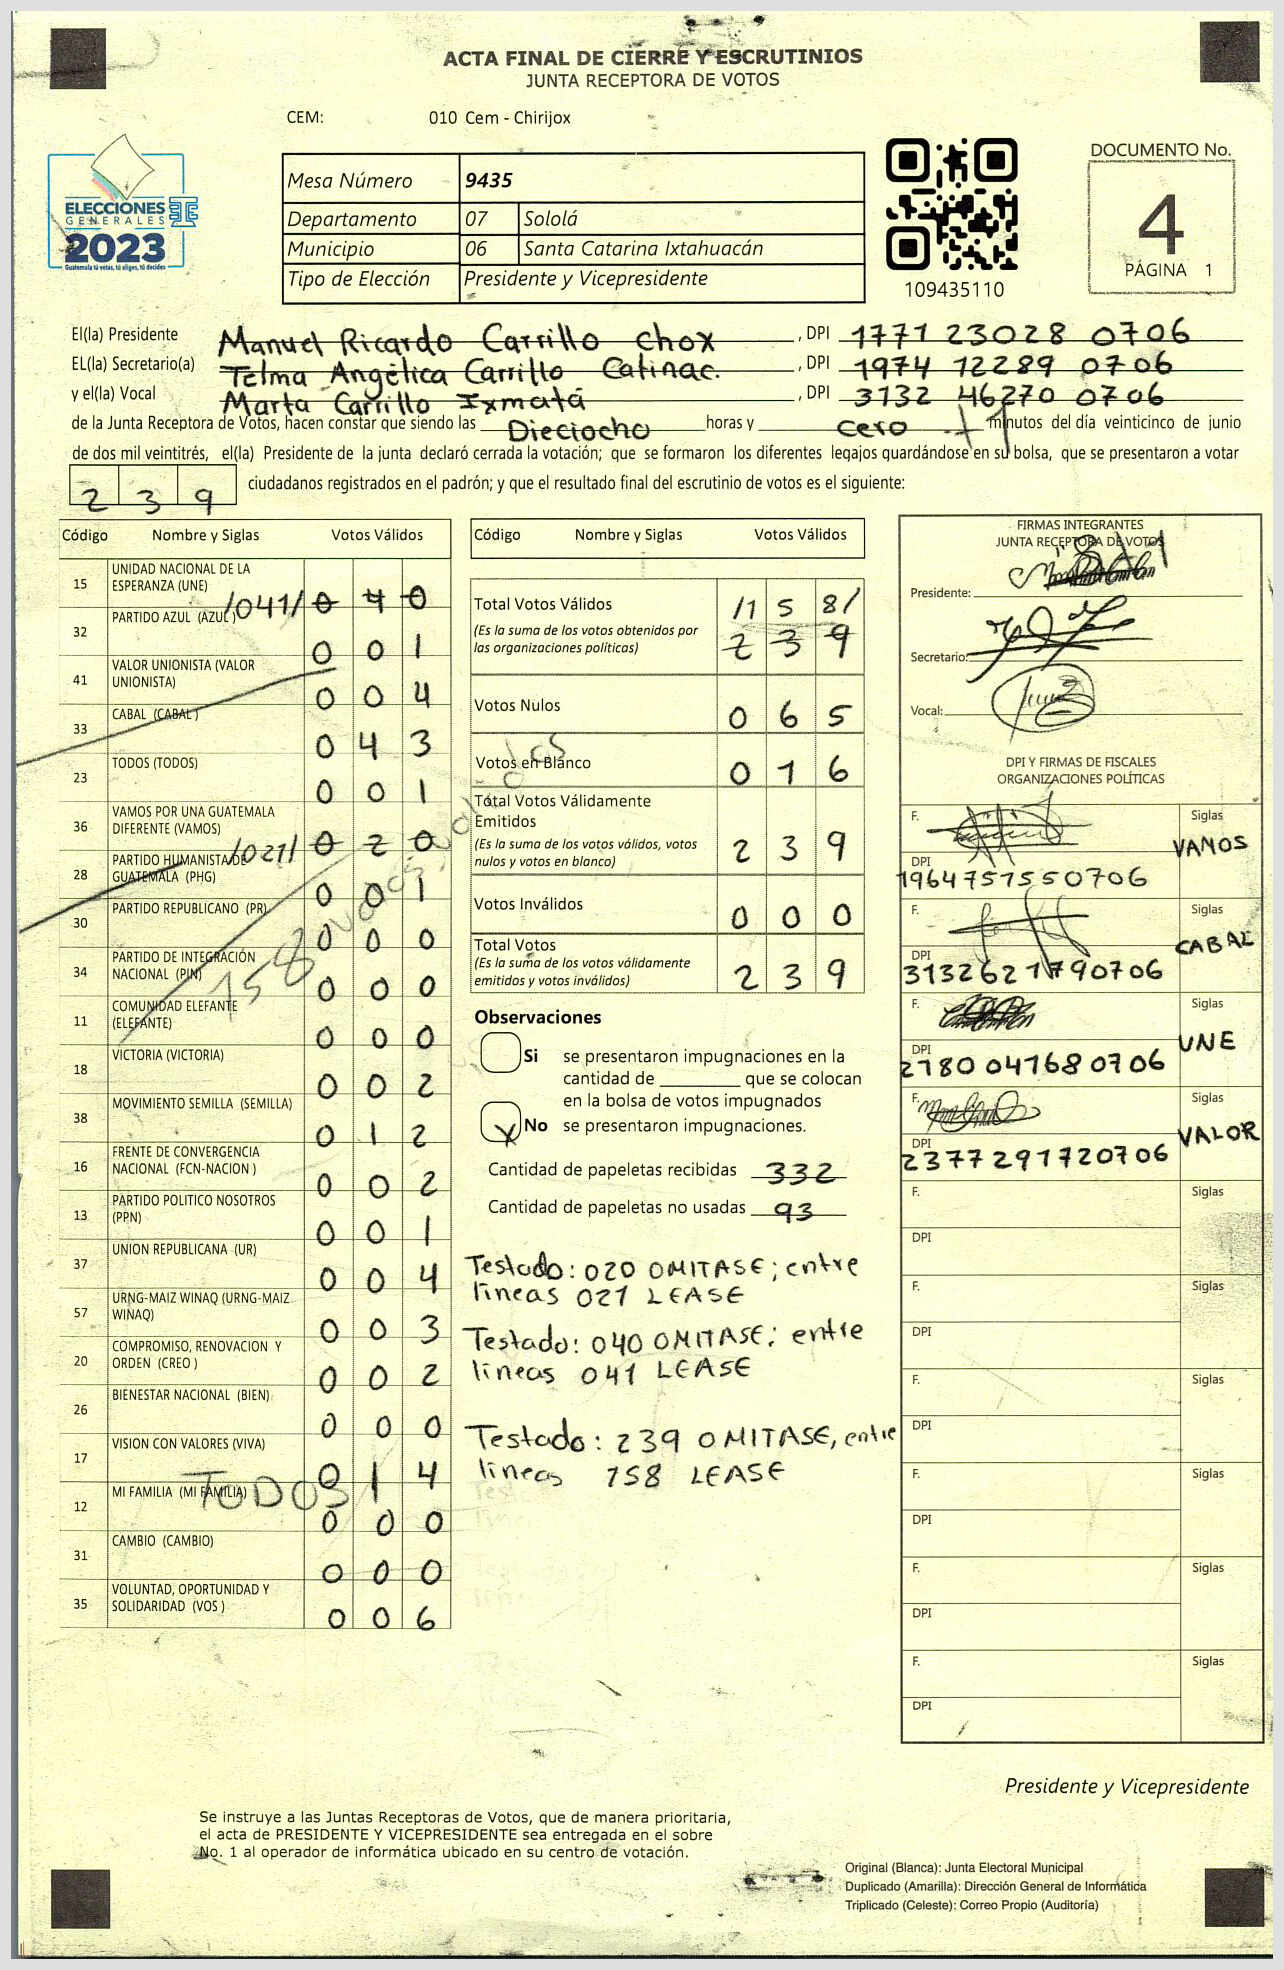 ACTA FINAL DE CIERRE Y ESCRUTINIOS
JUNTA RECEPTORA DE VOTOS
CEM: 010 Cem - Chirijox
ELECCIONES
GENERALES
2023
Guatemala tú votas, tú eliges, tú decides
Mesa Número 9435
Departamento 07 Sololá
Municipio 06 Santa Catarina Ixtahuacán
Tipo de Elección Presidente y Vicepresidente
109435110
DOCUMENTO No.
4
PÁGINA 1
El(la) Presidente Manuel Ricardo Carrillo Chox , DPI 1771 23028 0706
EL(la) Secretario(a) Telma Angélica Carrillo Catinac. , DPI 1974 12289 0706
y el(la) Vocal Marta Carrillo Ixmatá , DPI 3132 46270 0706
de la Junta Receptora de Votos, hacen constar que siendo las Dieciocho horas y cero minutos del día veinticinco de junio
de dos mil veintitrés, el(la) Presidente de la junta declaró cerrada la votación; que se formaron los diferentes legajos guardándose en su bolsa, que se presentaron a votar
2 3 9 ciudadanos registrados en el padrón; y que el resultado final del escrutinio de votos es el siguiente:
Código Nombre y Siglas Votos Válidos
15 UNIDAD NACIONAL DE LA
ESPERANZA (UNE) /041/ 0 4 0
32 PARTIDO AZUL (AZUL) 0 0 1
41 VALOR UNIONISTA (VALOR
UNIONISTA) 0 0 4
33 CABAL (CABAL) 0 4 3
23 TODOS (TODOS) 0 0 1
36 VAMOS POR UNA GUATEMALA
DIFERENTE (VAMOS) /021/ 0 2 0
28 PARTIDO HUMANISTA DE
GUATEMALA (PHG) 0 0 1
30 PARTIDO REPUBLICANO (PR) 0 0 0
34 PARTIDO DE INTEGRACIÓN
NACIONAL (PIN) 0 0 0
11 COMUNIDAD ELEFANTE
(ELEFANTE) 0 0 0
18 VICTORIA (VICTORIA) 0 0 2
38 MOVIMIENTO SEMILLA (SEMILLA) 0 1 2
16 FRENTE DE CONVERGENCIA
NACIONAL (FCN-NACION ) 0 0 2
13 PARTIDO POLITICO NOSOTROS
(PPN) 0 0 1
37 UNION REPUBLICANA (UR) 0 0 4
57 URNG-MAIZ WINAQ (URNG-MAIZ
WINAQ) 0 0 3
20 COMPROMISO, RENOVACION Y
ORDEN (CREO ) 0 0 2
26 BIENESTAR NACIONAL (BIEN) 0 0 0
17 VISION CON VALORES (VIVA) 0 1 4
12 MI FAMILIA (MI FAMILIA) 0 0 0
31 CAMBIO (CAMBIO) 0 0 0
35 VOLUNTAD, OPORTUNIDAD Y
SOLIDARIDAD (VOS ) 0 0 6
158
TODOS
Código Nombre y Siglas Votos Válidos
Total Votos Válidos /1 5 8/
(Es la suma de los votos obtenidos por
las organizaciones políticas) 2 3 9
Votos Nulos 0 6 5
Votos en Blanco 0 1 6
Total Votos Válidamente
Emitidos
(Es la suma de los votos válidos, votos
nulos y votos en blanco) 2 3 9
Votos Inválidos 0 0 0
Total Votos
(Es la suma de los votos válidamente
emitidos y votos inválidos) 2 3 9
Observaciones
Si se presentaron impugnaciones en la
cantidad de ________ que se colocan
en la bolsa de votos impugnados
X No se presentaron impugnaciones.
Cantidad de papeletas recibidas 332
Cantidad de papeletas no usadas 93
Testado: 020 OMITASE; entre
lineas 021 LEASE
Testado: 040 OMITASE; entre
lineas 041 LEASE
Testado: 239 OMITASE, entre
lineas 158 LEASE
FIRMAS INTEGRANTES
JUNTA RECEPTORA DE VOTOS
Presidente:
Secretario:
Vocal:
DPI Y FIRMAS DE FISCALES
ORGANIZACIONES POLÍTICAS
F. Siglas
VAMOS
DPI
1964751550706
F. Siglas
CABAL
DPI
3132621790706
F. Siglas
UNE
DPI
2780 04768 0706
F. Siglas
VALOR
DPI
2377291720706
F. Siglas
DPI
F. Siglas
DPI
F. Siglas
DPI
F. Siglas
DPI
F. Siglas
DPI
F. Siglas
DPI
Presidente y Vicepresidente
Se instruye a las Juntas Receptoras de Votos, que de manera prioritaria,
el acta de PRESIDENTE Y VICEPRESIDENTE sea entregada en el sobre
No. 1 al operador de informática ubicado en su centro de votación.
Original (Blanca): Junta Electoral Municipal
Duplicado (Amarilla): Dirección General de Informática
Triplicado (Celeste): Correo Propio (Auditoría)